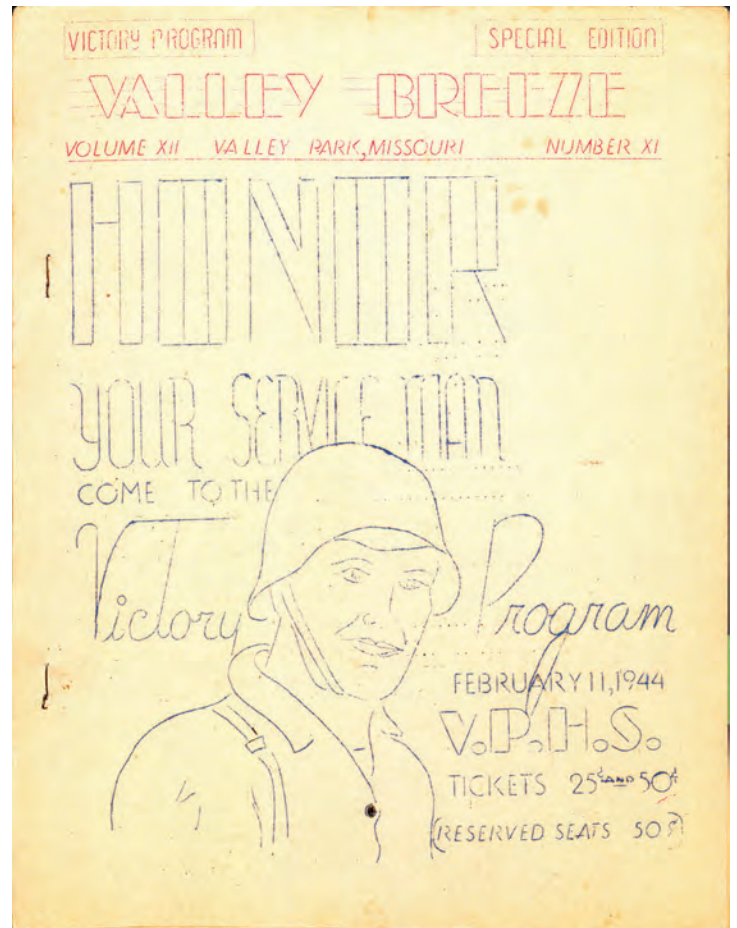 VICTORY PROGRAM SPECIAL EDITION
VALLEY BREEZE
VOLUME XII VALLEY PARK, MISSOURI NUMBER XI
HONOR
YOUR SERVICE MAN
COME TO THE
Victory Program
FEBRUARY 11, 1944
V.P.H.S.
TICKETS 25¢ AND 50¢
(RESERVED SEATS 50¢)